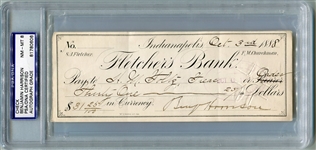 No.
Indianapolis Oct 3rd 1888
S.J. Fletcher.
F.M. Churchman.
Fletcher's Bank.
Pay to
or Order
Thirty One 25/100 Dollars
$31 25/100 in Currency.
Benj Harrison
PSA/DNA
CHECK
BENJAMIN HARRISON
PSA/DNA CERTIFIED
AUTOGRAPH GRADE
NM-MT 8